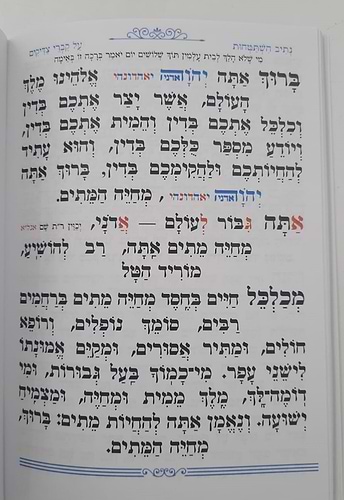 נתיב השתטחות
על קברי צדיקים
מי שלא הלך לבית עלמין תוך שלושים יום יאמר ברכה זו באימה
בָּרוּךְ אַתָּה יְהֹוָה יאהדונהי אֱלֹהֵינוּ מֶלֶךְ
הָעוֹלָם, אֲשֶׁר יָצַר אֶתְכֶם בַּדִּין
וְכִלְכֵּל אֶתְכֶם בַּדִּין וְהֵמִית אֶתְכֶם בַּדִּין,
וְיוֹדֵעַ מִסְפַּר כֻּלְּכֶם בַּדִּין, וְהוּא עָתִיד
לְהַחֲיוֹתְכֶם וּלְהַקִימְכֶם בַּדִּין. בָּרוּךְ אַתָּה
יְהֹוָה יאהדונהי, מְחַיֵּה הַמֵּתִים.
אַתָּה גִּבּוֹר לְעוֹלָם — אֲדֹנָי, יכוין ר״ת שם אגלא
מְחַיֵּה מֵתִים אַתָּה, רַב לְהוֹשִׁיעַ,
מוֹרִיד הַטָּל
מְכַלְכֵּל חַיִּים בְּחֶסֶד מְחַיֵּה מֵתִים בְּרַחֲמִים
רַבִּים, סוֹמֵךְ נוֹפְלִים, וְרוֹפֵא
חוֹלִים, וּמַתִּיר אֲסוּרִים, וּמְקַיֵּם אֱמוּנָתוֹ
לִישֵׁנֵי עָפָר. מִי־כָמוֹךָ בַּעַל גְּבוּרוֹת, וּמִי
דוֹמֶה־לָּךְ, מֶלֶךְ מֵמִית וּמְחַיֶּה, וּמַצְמִיחַ
יְשׁוּעָה. וְנֶאֱמָן אַתָּה לְהַחֲיוֹת מֵתִים: בָּרוּךְ,
מְחַיֵּה הַמֵּתִים.